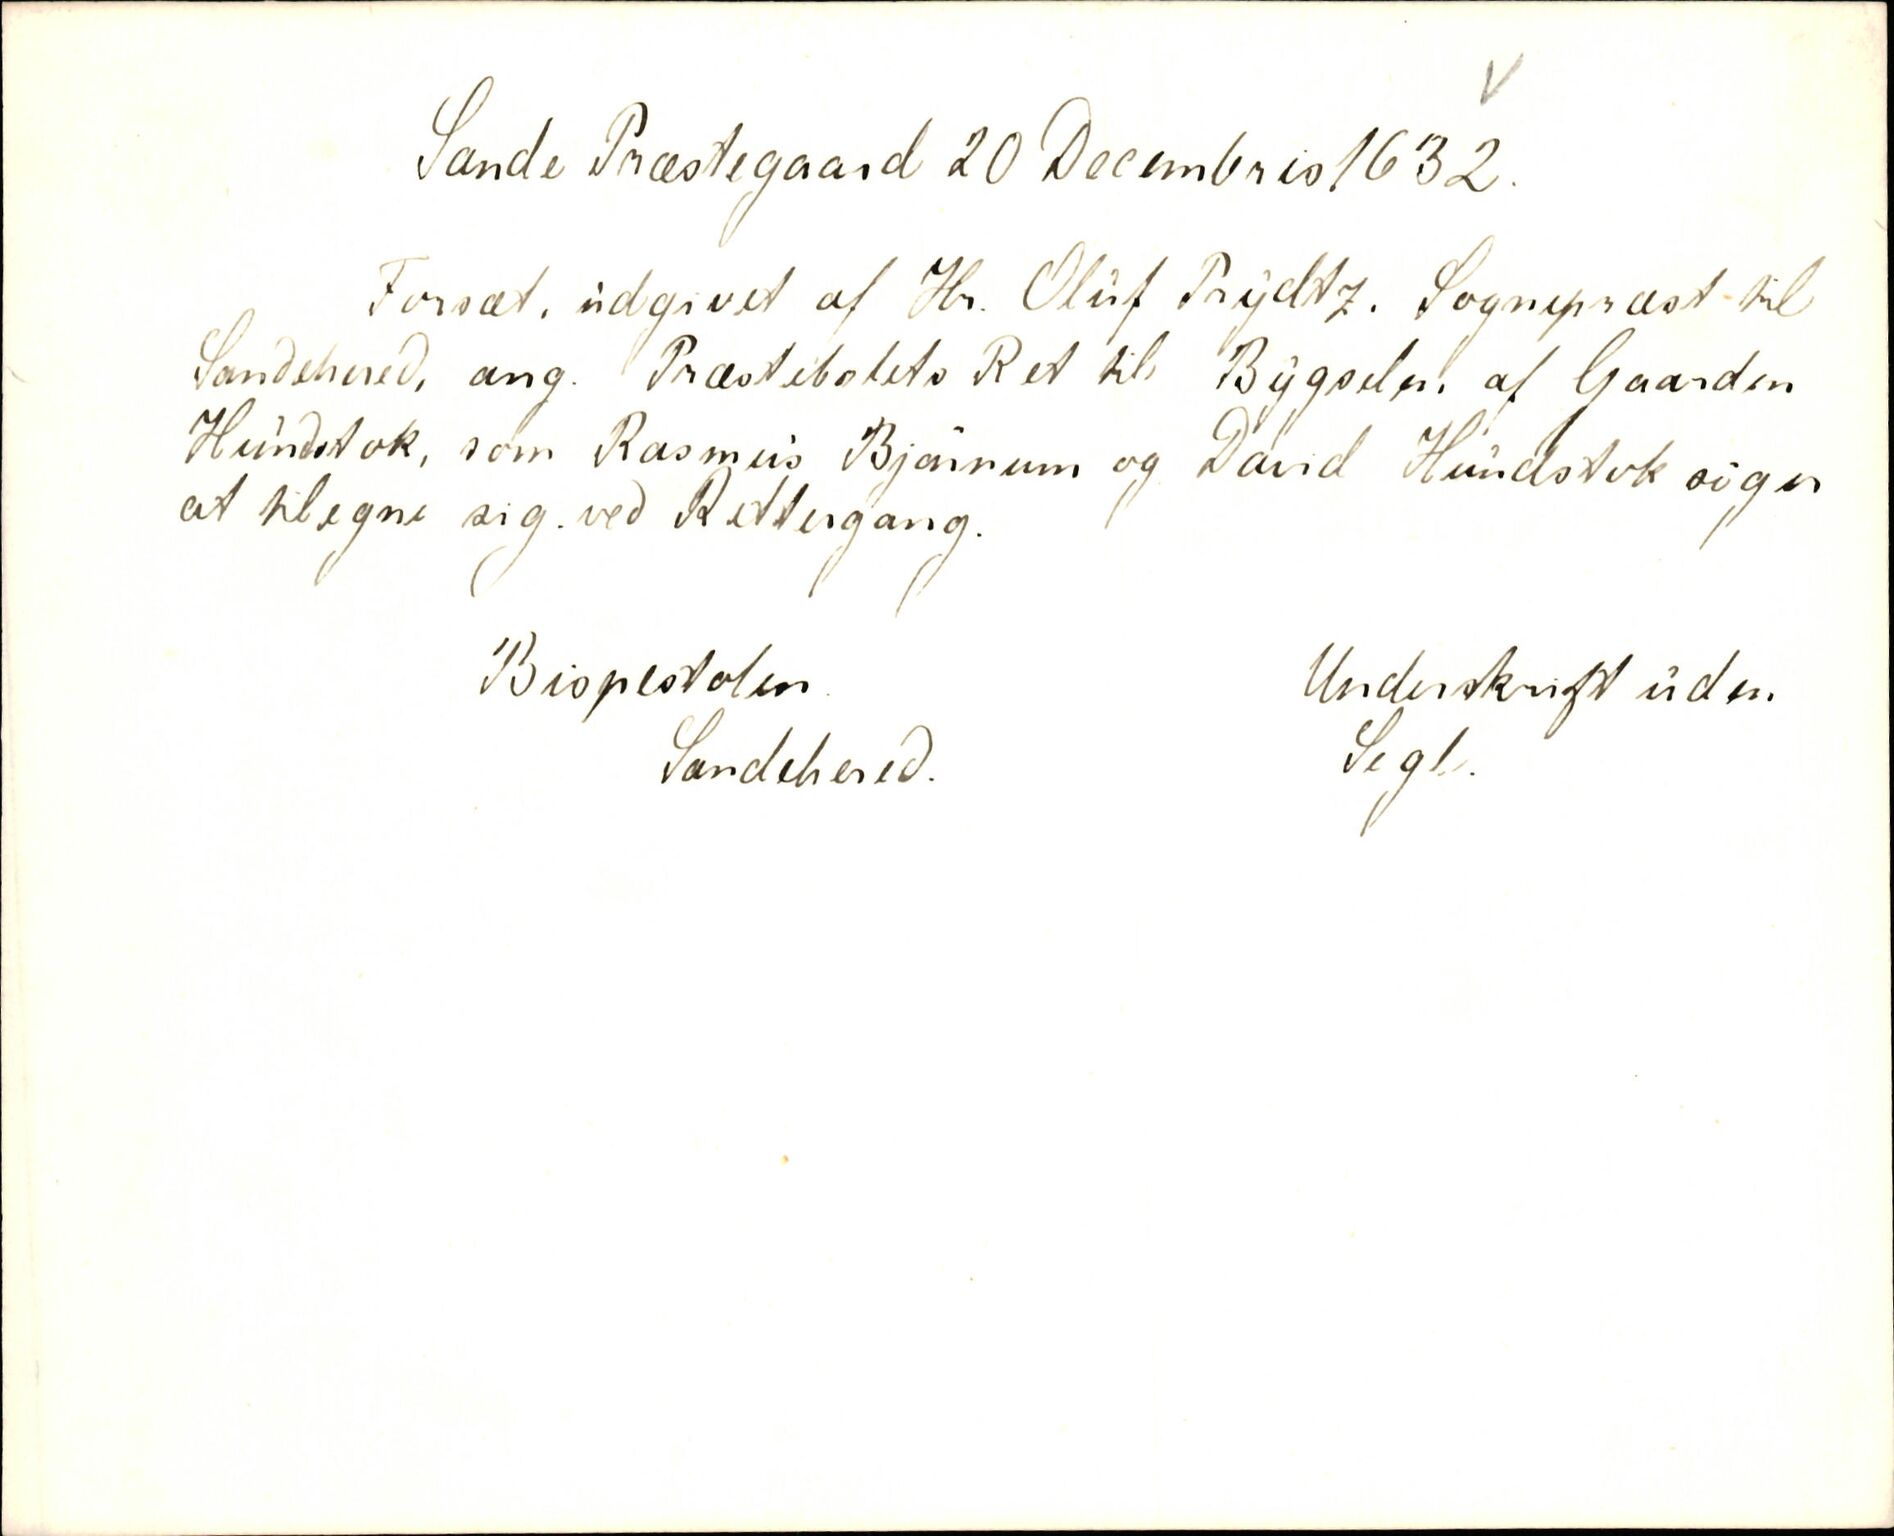 V
Sande Præstegaard 20 Decembris 1632.
Forsæt, üdgivet af Hr. Olüf Prÿdtz. Sognepræst til
Sandehered, ang. Præstebolets Ret til Bÿgselen af Gaarden
Hündstok, som Rasmüs Bjärnum og David Hündstok söger
at tilegne sig ved Rettergang.
Bispestolen
Sandehered.
Underskrift üden
Segl.